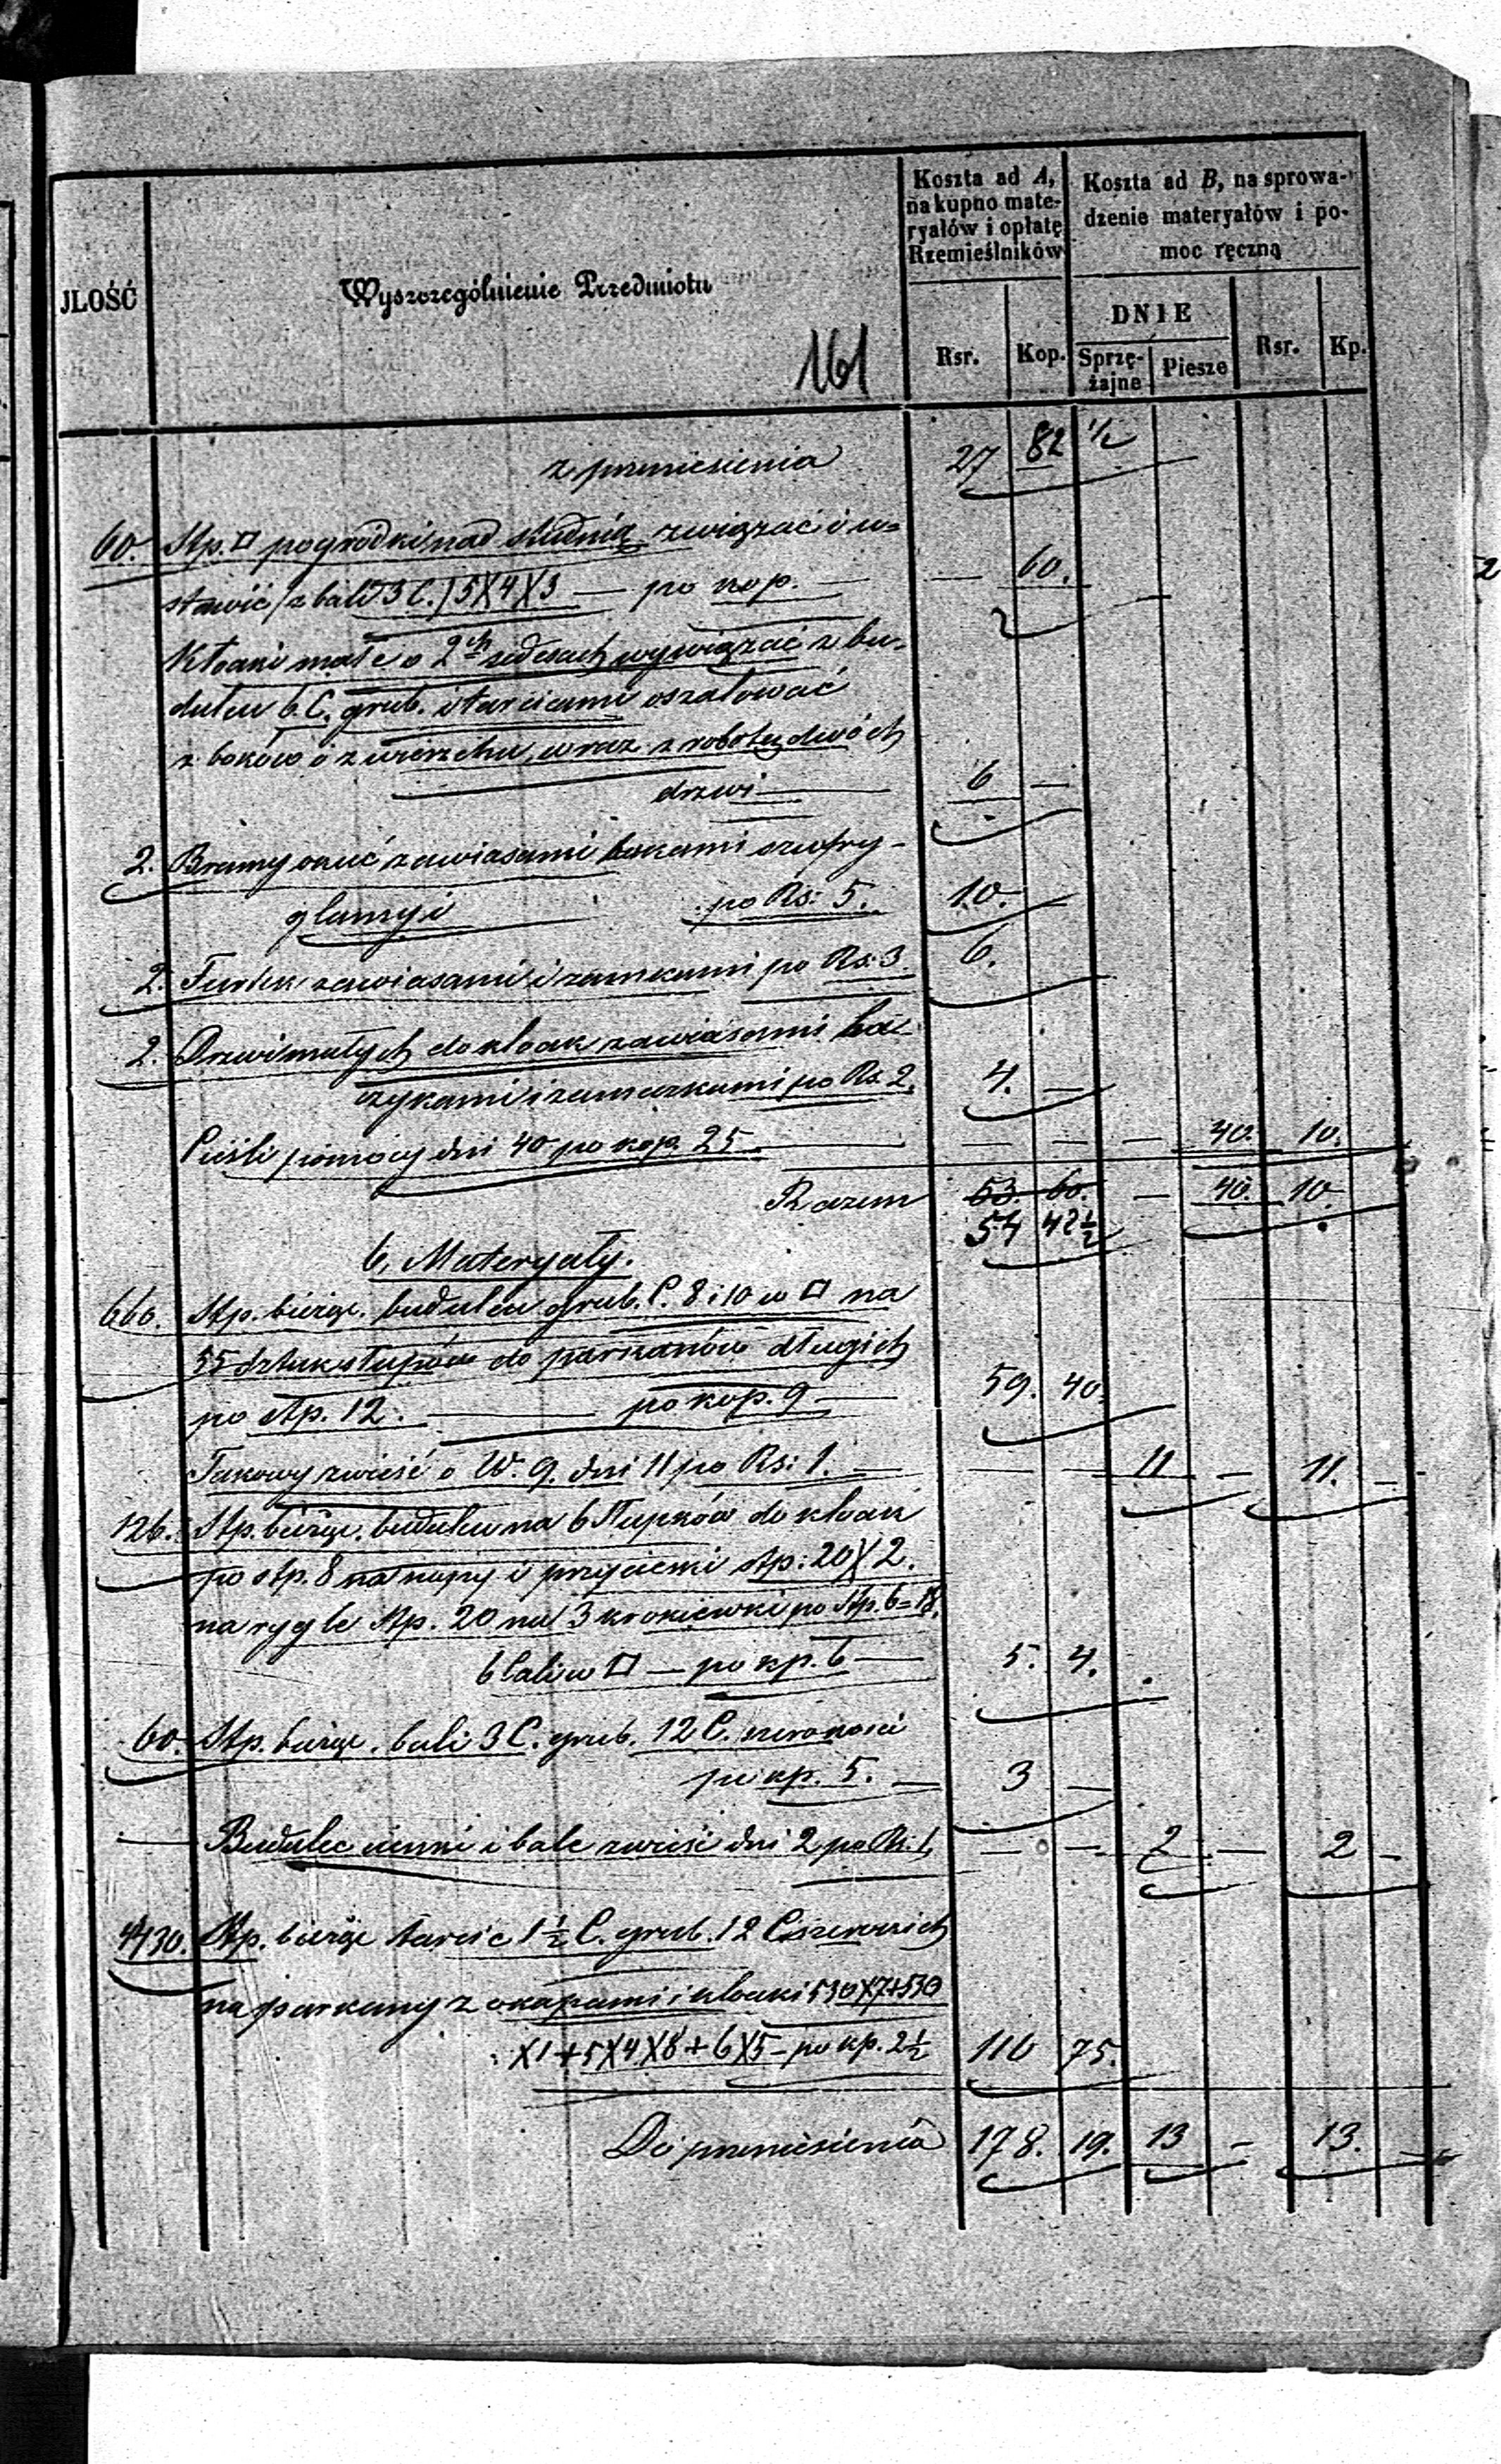 JLOŚĆ
Wyszczególnienie Przedmiotu
161
Koszta ad A,
na kupno mate-
ryałów i opłatę
Rzemieślników
Koszta ad B, na sprowa-
dzenie materyałów i po-
moc ręczną
DNIE
Rsr. Kop. Sprzę-
żajne Piesze Rsr. Kp.
z przeniesienia 27 82 1/2
60. Stp. □ pogrodki nad studnią związać i u=
stawić (z bali 3 C.) 5X4X3 — po kop. — — 60.
Kloaki małe o 2ch sedesach wywiązać z bu-
dulcu 6 C. grub. i tarcicami oszalować
z boków i z wierzchu, wraz z robotą dwóch
drzwi — 6 —
2. Bramy okuć zawiasami hakami
i po Rs: 5. 10. —
2. Furtek zawiasami i zamkami po Rs: 3 6.
2. Drzwi małych do kloak zawiasami ha-
czykami i zameczkami po Rs. 2. 4. —
Cieśli pomocy dni 40 po kop. 25 — — — — 40. 10.
Razem 53. 60. — 40. 10
54 42 1/2
b, Materyały.
660. Stp. bieżąc. budulcu grub. C. 8 i 10 w □ na
55 sztuk słupów do parkanów długich
po stp. 12. — po kop. 9 — 59. 40.
Takowy zwieść o W. 9. dni 11 po Rs: 1. — — — 11 — 11. —
126. Stp. bieżąc. budulcu na 6 słupków do kloak
po stp. 8 na i przycieski stp: 20X2.
na rygle stp. 20 na 3 krokiewki po stp. 6=18.
6 cali w □ — po kp. 6 — 5. 4.
60. Stp. bieżąc. bali 3 C. grub. 12 C. szerokości
po kp. 5. — 3 —
— Budulec i bale zwieść dni 2 po Rs: 1, — — 2 — 2 —
4430. Stp. bieżąc tarcic 1 1/2 C. grub. 12 C szerokich
na parkany z okapami i kloaki 530X7+530
X1+5X4X8+6X5 — po kp. 2 1/2 110 75.
Do przeniesienia 178. 19. 13 — 13. —